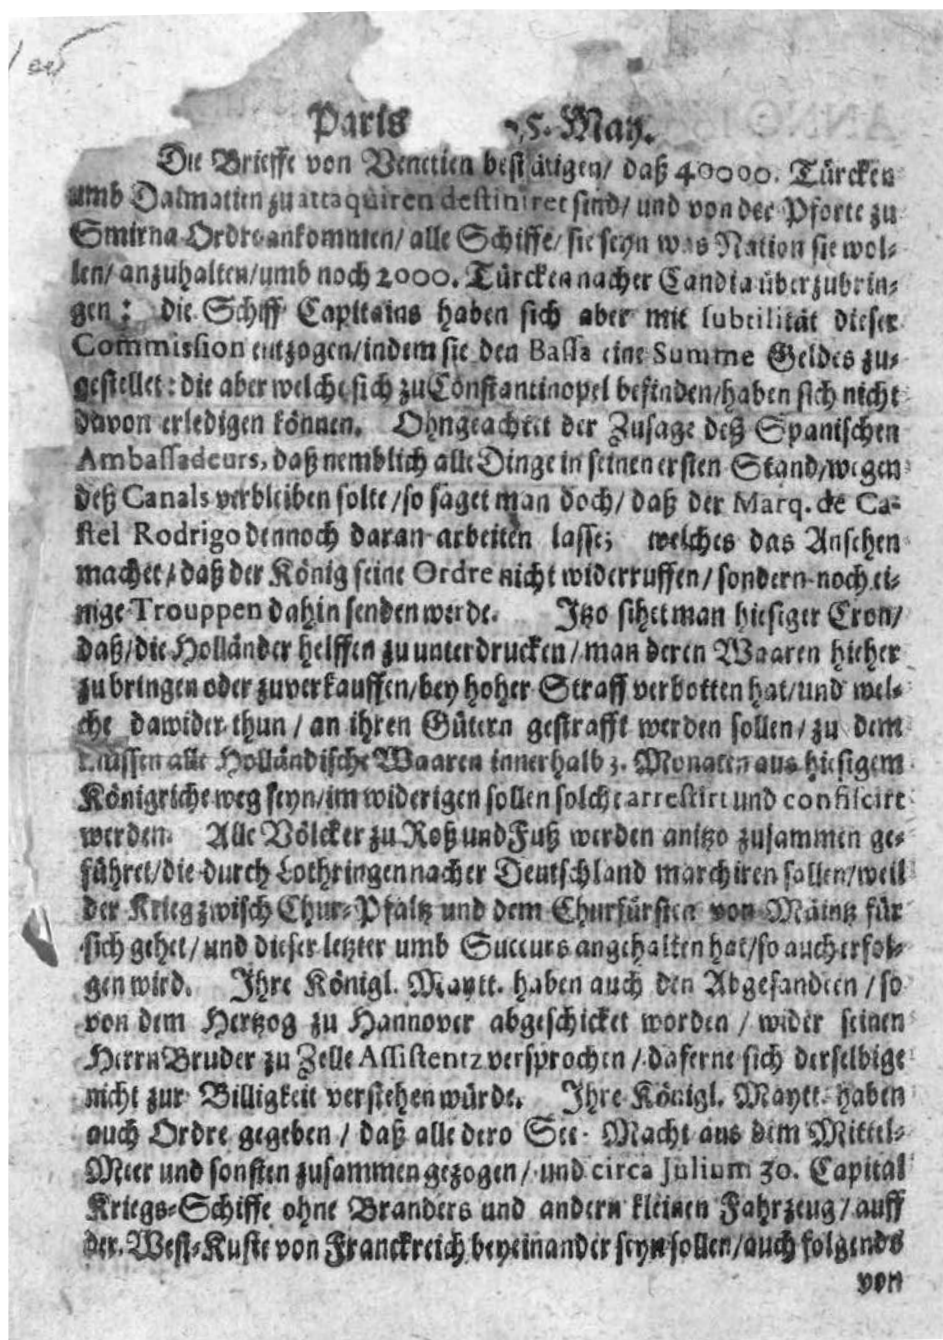 Paris 5. May.
Die Brieffe von Venetien bestätigen/ daß 40000. Türcken
umb Dalmatien zu attaquiren destiniret sind/ und von der Pforte zu
Smirna Ordre ankommen/ alle Schiffe/ sie seyn was Nation sie wol-
len/ anzuhalten/ umb noch 2000. Türcken nacher Candia überzubrin-
gen: die Schiff Capitains haben sich aber mit subtilität dieser
Commission entzogen/ indem sie den Bassa eine Summe Geldes zu-
gestellet: die aber welche sich zu Constantinopel befinden/ haben sich nicht
davon erledigen können. Ohngeachtet der Zusage deß Spanischen
Ambassadeurs, daß nemblich alle Dinge in seinen ersten Stand/ wegen
deß Canals verbleiben solte/ so saget man doch/ daß der Marq. de Ca-
stel Rodrigo dennoch daran arbeiten lasse; welches das Ansehen
machet/ daß der König seine Ordre nicht widerruffen/ sondern noch ei-
nige Trouppen dahin senden werde. Itzo sihet man hiesiger Cron/
daß/ die Holländer helffen zu unterdrucken/ man deren Waaren hieher
zu bringen oder zuverkauffen/ bey hoher Straff verbotten hat/ und wel-
che dawider thun/ an ihren Gütern gestrafft werden sollen/ zu dem
müssen alle Holländische Waaren innerhalb 3. Monaten aus hiesigem
Königriche weg seyn/ im widerigen sollen solche arrestirt und confiscirt
werden. Alle Völcker zu Roß und Fuß werden anitzo zusammen ge-
führet/ die durch Lothringen nacher Deutschland marchiren sollen/ weil
der Krieg zwisch Chur-Pfaltz und dem Churfürsten von Mäintz für
sich gehet/ und dieser letzter umb Succurs angehalten hat/ so auch erfol-
gen wird. Ihre Königl. Maytt. haben auch den Abgesandten/ so
von dem Hertzog zu Hannover abgeschicket worden/ wider seinen
Herrn Bruder zu Zelle Assistentz versprochen/ daferne sich derselbige
nicht zur Billigkeit verstehen würde. Ihre Königl. Maytt. haben
auch Ordre gegeben/ daß alle dero See-Macht aus dem Mittel-
Meer und sonsten zusammen gezogen/ und circa Julium 30. Capital
Kriegs-Schiffe ohne Branders und andern kleinen Fahrzeug/ auff
der West-Kuste von Franckreich beyeinander seyn sollen/ auch folgends
von